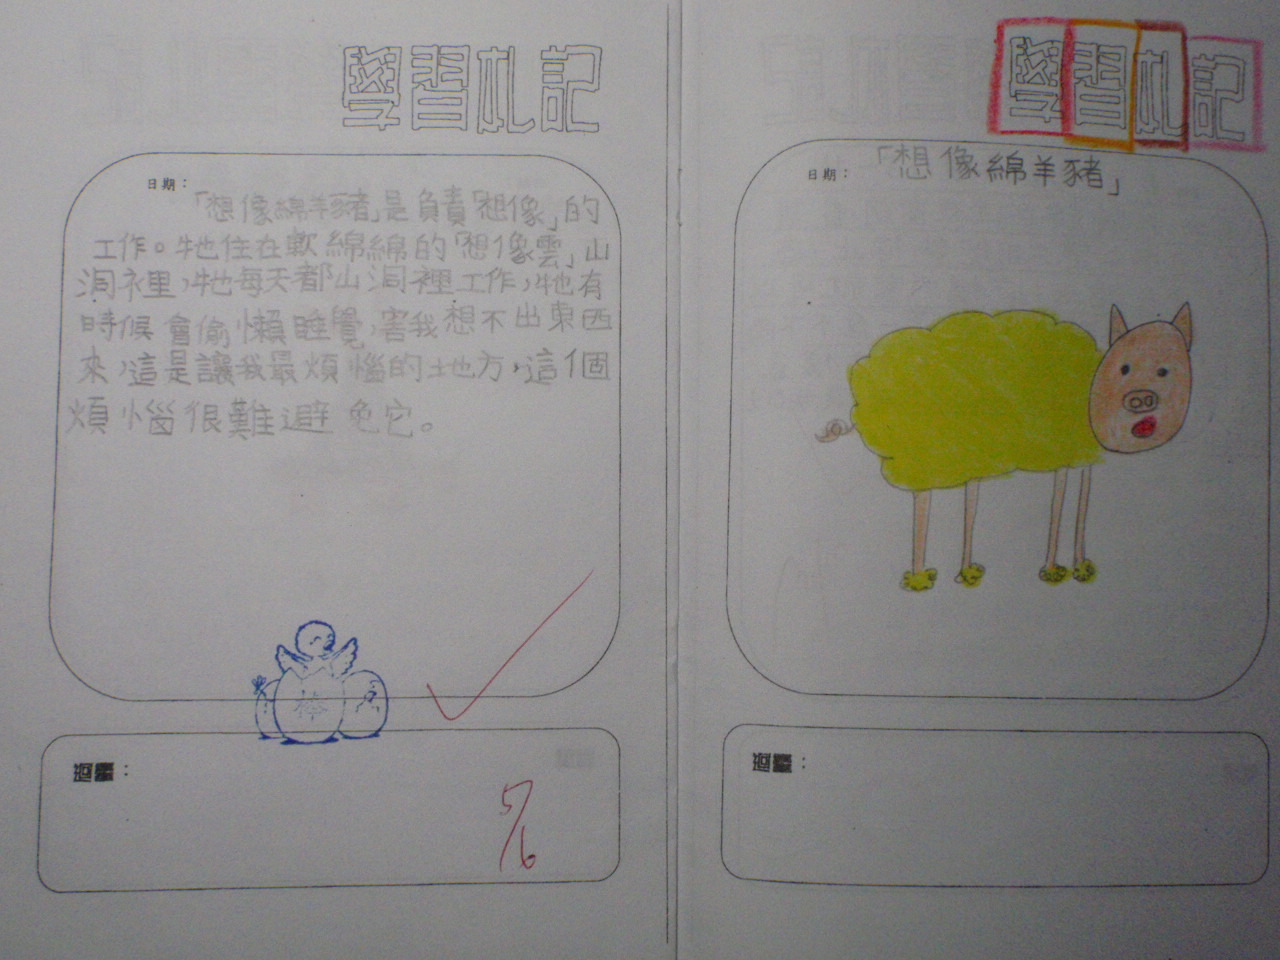 學習札記
日期：
「想像綿羊豬」是負責「想像」的
工作。牠住在軟綿綿的「想像雲」山
洞裡，牠每天都山洞裡工作，牠有
時候會偷懶睡覺，害我想不出東西
來，這是讓我最煩惱的地方，這個
煩惱很難避免它。
棒
迴響：
5/6
學習札記
日期：「想像綿羊豬」
迴響：